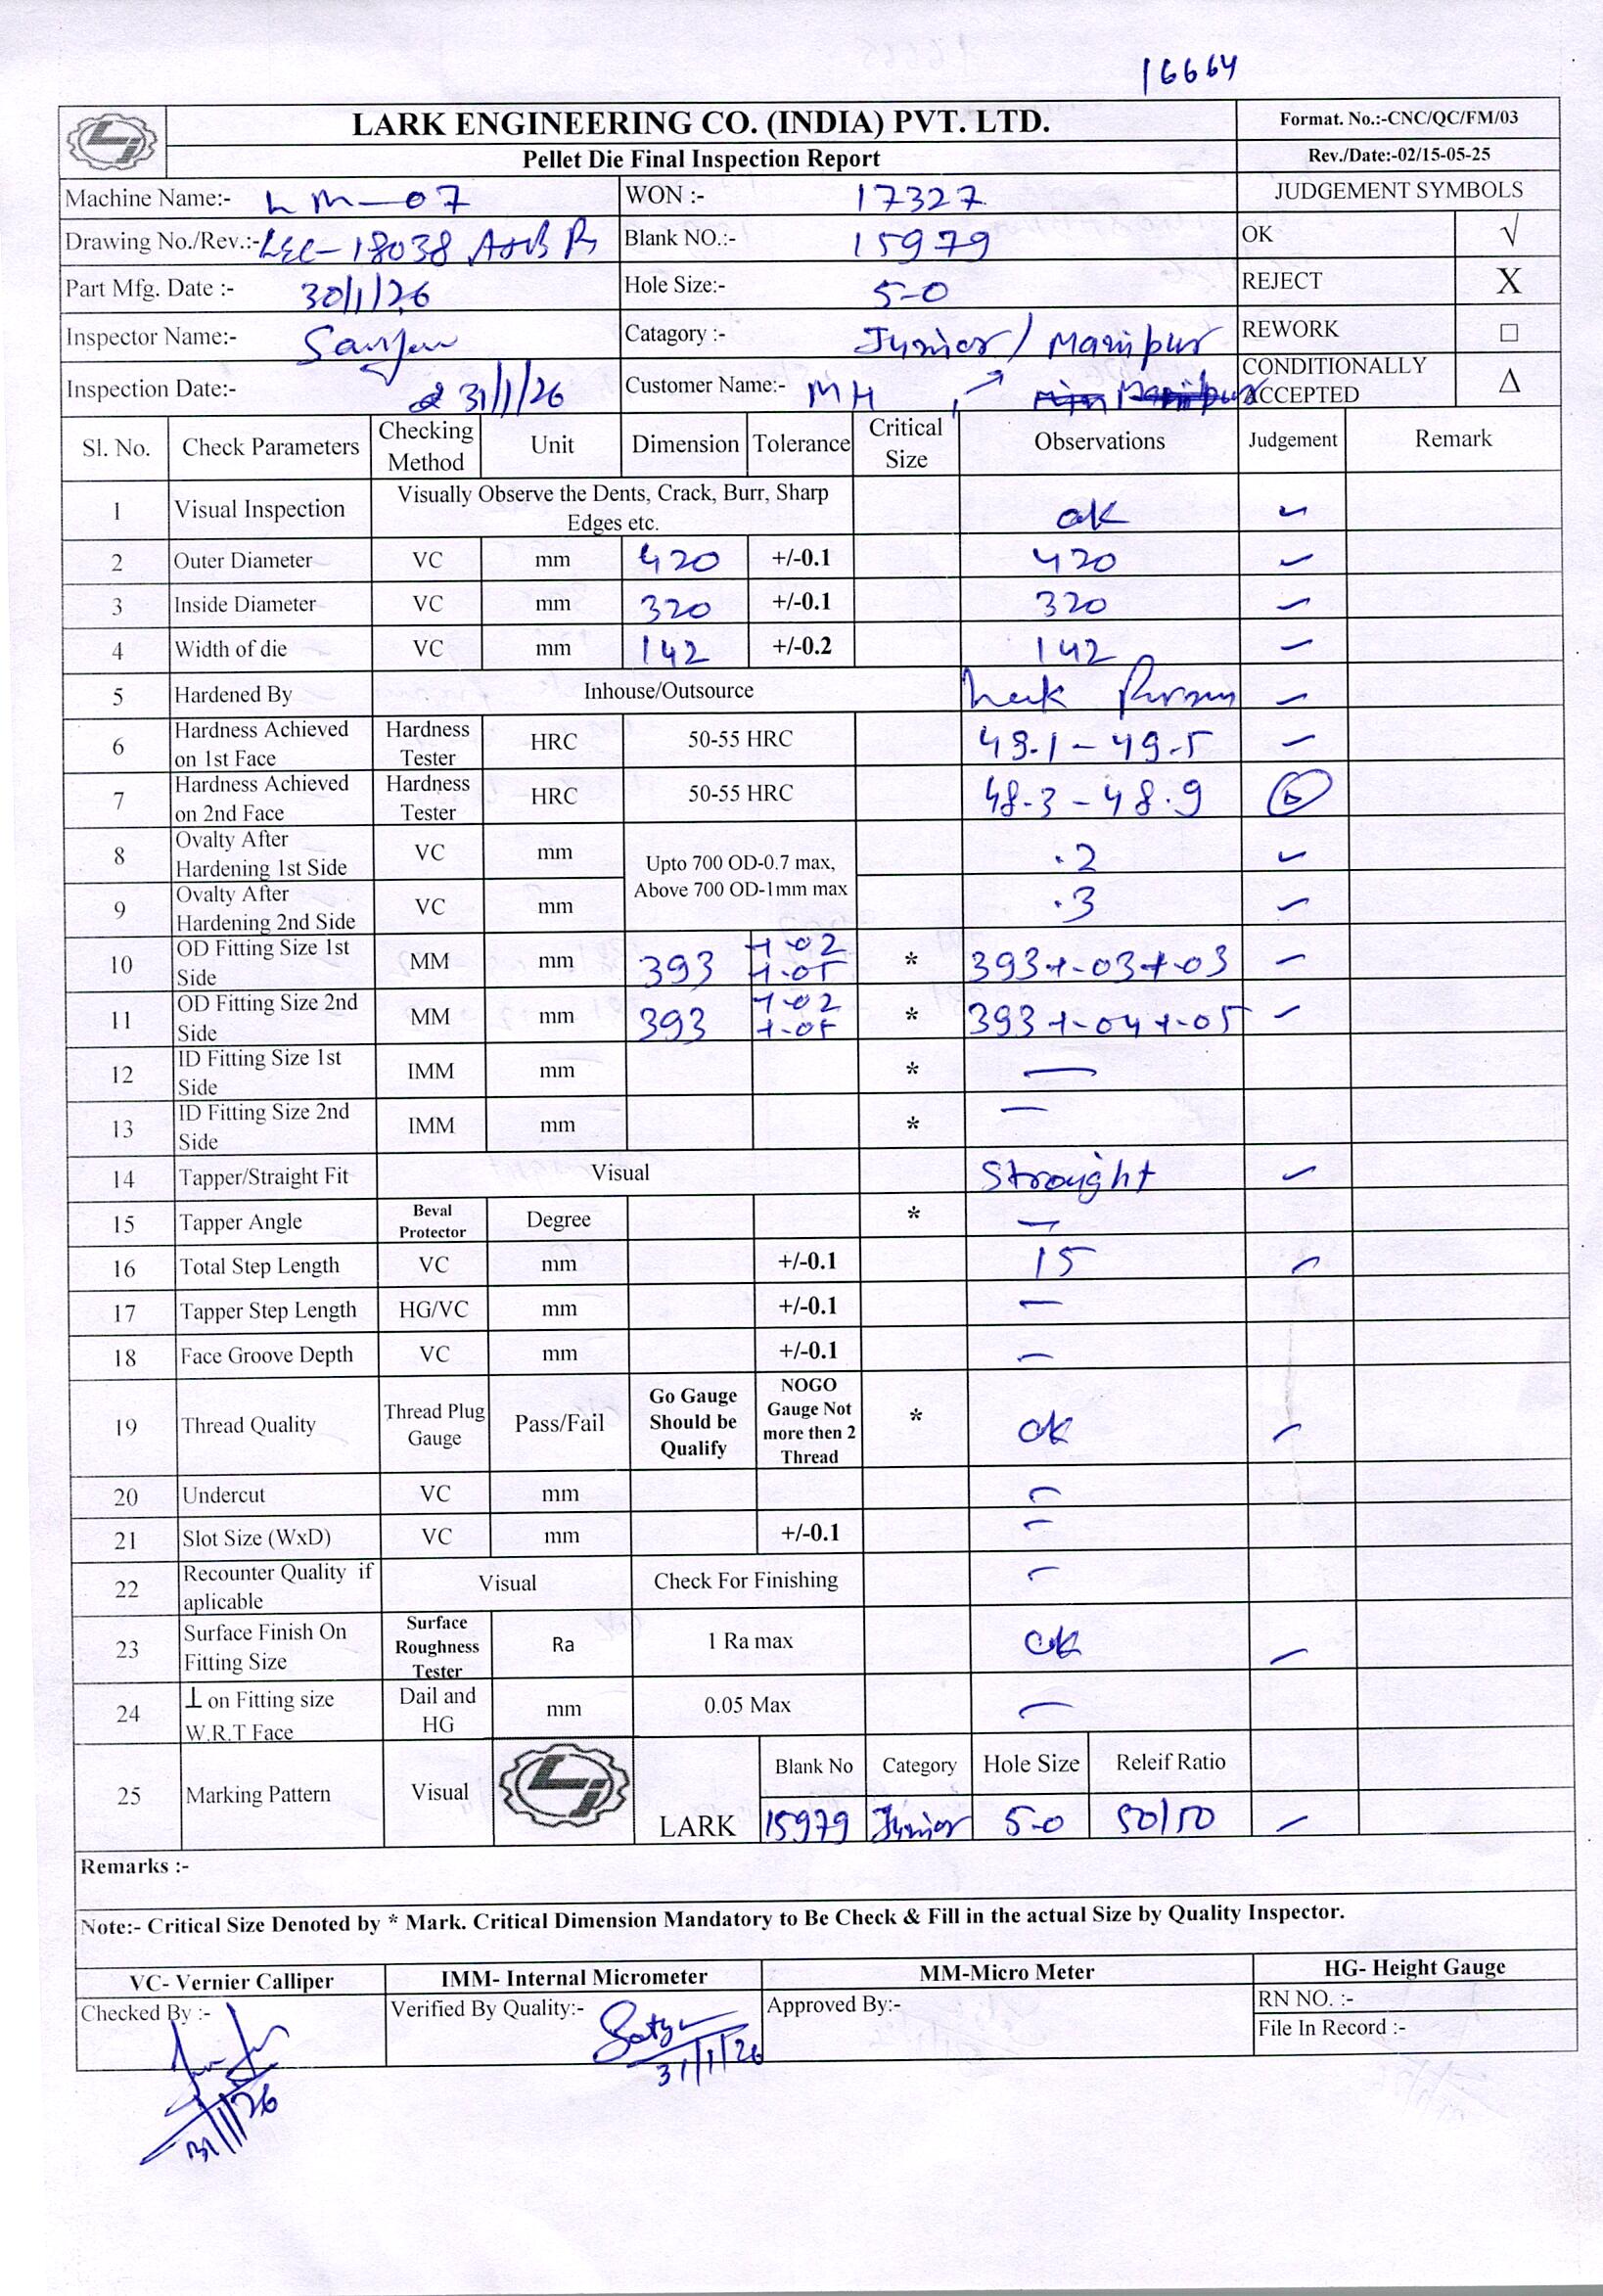 16664
LARK ENGINEERING CO. (INDIA) PVT. LTD.
Format. No.:-CNC/QC/FM/03
Pellet Die Final Inspection Report
Rev./Date:-02/15-05-25
Machine Name:- LM-07 WON :- 17327 JUDGEMENT SYMBOLS
Drawing No./Rev.:- LEC-18038 Blank NO.:- 15979 OK √
Part Mfg. Date :- 30/1/26 Hole Size:- 5-0 REJECT X
Inspector Name:- Catagory :- Junior/ Manipur REWORK □
Inspection Date:- 31/1/26 Customer Name:- MH CONDITIONALLY ACCEPTED Δ
Sl. No. Check Parameters Checking Method Unit Dimension Tolerance Critical Size Observations Judgement Remark
1 Visual Inspection Visually Observe the Dents, Crack, Burr, Sharp Edges etc. ok ✓
2 Outer Diameter VC mm 420 +/-0.1 420 ✓
3 Inside Diameter VC mm 320 +/-0.1 320 ✓
4 Width of die VC mm 142 +/-0.2 142 ✓
5 Hardened By Inhouse/Outsource ✓
6 Hardness Achieved on 1st Face Hardness Tester HRC 50-55 HRC 49.5 ✓
7 Hardness Achieved on 2nd Face Hardness Tester HRC 50-55 HRC 48.3 - 48.9
8 Ovalty After Hardening 1st Side VC mm Upto 700 OD-0.7 max, Above 700 OD-1mm max .2 ✓
9 Ovalty After Hardening 2nd Side VC mm .3 ✓
10 OD Fitting Size 1st Side MM mm 393 +.02 +.05 * 393+.03+.03 ✓
11 OD Fitting Size 2nd Side MM mm 393 +.02 +.05 * 393+.04+.05 ✓
12 ID Fitting Size 1st Side IMM mm * —
13 ID Fitting Size 2nd Side IMM mm * —
14 Tapper/Straight Fit Visual Straight ✓
15 Tapper Angle Beval Protector Degree * —
16 Total Step Length VC mm +/-0.1 15 ✓
17 Tapper Step Length HG/VC mm +/-0.1 —
18 Face Groove Depth VC mm +/-0.1 —
19 Thread Quality Thread Plug Gauge Pass/Fail Go Gauge Should be Qualify NOGO Gauge Not more then 2 Thread * ok ✓
20 Undercut VC mm —
21 Slot Size (WxD) VC mm +/-0.1 —
22 Recounter Quality if aplicable Visual Check For Finishing —
23 Surface Finish On Fitting Size Surface Roughness Tester Ra 1 Ra max ok ✓
24 ⊥ on Fitting size W.R.T Face Dail and HG mm 0.05 Max —
25 Marking Pattern Visual LARK Blank No Category Hole Size Releif Ratio
15979 Junior 5-0 50/50 ✓
Remarks :-
Note:- Critical Size Denoted by * Mark. Critical Dimension Mandatory to Be Check & Fill in the actual Size by Quality Inspector.
VC- Vernier Calliper IMM- Internal Micrometer MM-Micro Meter HG- Height Gauge
Checked By :- Verified By Quality:- Approved By:- RN NO. :-
File In Record :-
31/1/26
31/1/26